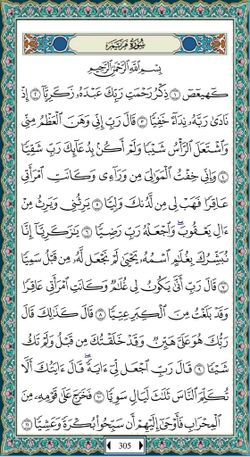 سُورَةُ مَرْيَمَ
بِسْمِ اللَّهِ الرَّحْمَٰنِ الرَّحِيمِ
كهيعص ١ ذِكْرُ رَحْمَتِ رَبِّكَ عَبْدَهُ زَكَرِيَّا ٢ إِذْ
نَادَىٰ رَبَّهُ نِدَاءً خَفِيًّا ٣ قَالَ رَبِّ إِنِّي وَهَنَ الْعَظْمُ مِنِّي
وَاشْتَعَلَ الرَّأْسُ شَيْبًا وَلَمْ أَكُنْ بِدُعَائِكَ رَبِّ شَقِيًّا
٤ وَإِنِّي خِفْتُ الْمَوَالِيَ مِنْ وَرَاءِي وَكَانَتِ امْرَأَتِي
عَاقِرًا فَهَبْ لِي مِنْ لَدُنْكَ وَلِيًّا ٥ يَرِثُنِي وَيَرِثُ مِنْ
ءَالِ يَعْقُوبَ وَاجْعَلْهُ رَبِّ رَضِيًّا ٦ يَٰزَكَرِيَّا إِنَّا
نُبَشِّرُكَ بِغُلَٰمٍ اسْمُهُ يَحْيَىٰ لَمْ نَجْعَلْ لَهُ مِنْ قَبْلُ سَمِيًّا
٧ قَالَ رَبِّ أَنَّىٰ يَكُونُ لِي غُلَٰمٌ وَكَانَتِ امْرَأَتِي عَاقِرًا
وَقَدْ بَلَغْتُ مِنَ الْكِبَرِ عِتِيًّا ٨ قَالَ كَذَٰلِكَ قَالَ
رَبُّكَ هُوَ عَلَيَّ هَيِّنٌ وَقَدْ خَلَقْتُكَ مِنْ قَبْلُ وَلَمْ تَكُ
شَيْئًا ٩ قَالَ رَبِّ اجْعَلْ لِي ءَايَةً قَالَ ءَايَتُكَ أَلَّا
تُكَلِّمَ النَّاسَ ثَلَٰثَ لَيَالٍ سَوِيًّا ١٠ فَخَرَجَ عَلَىٰ قَوْمِهِ مِنَ
الْمِحْرَابِ فَأَوْحَىٰ إِلَيْهِمْ أَنْ سَبِّحُوا بُكْرَةً وَعَشِيًّا ١١
305